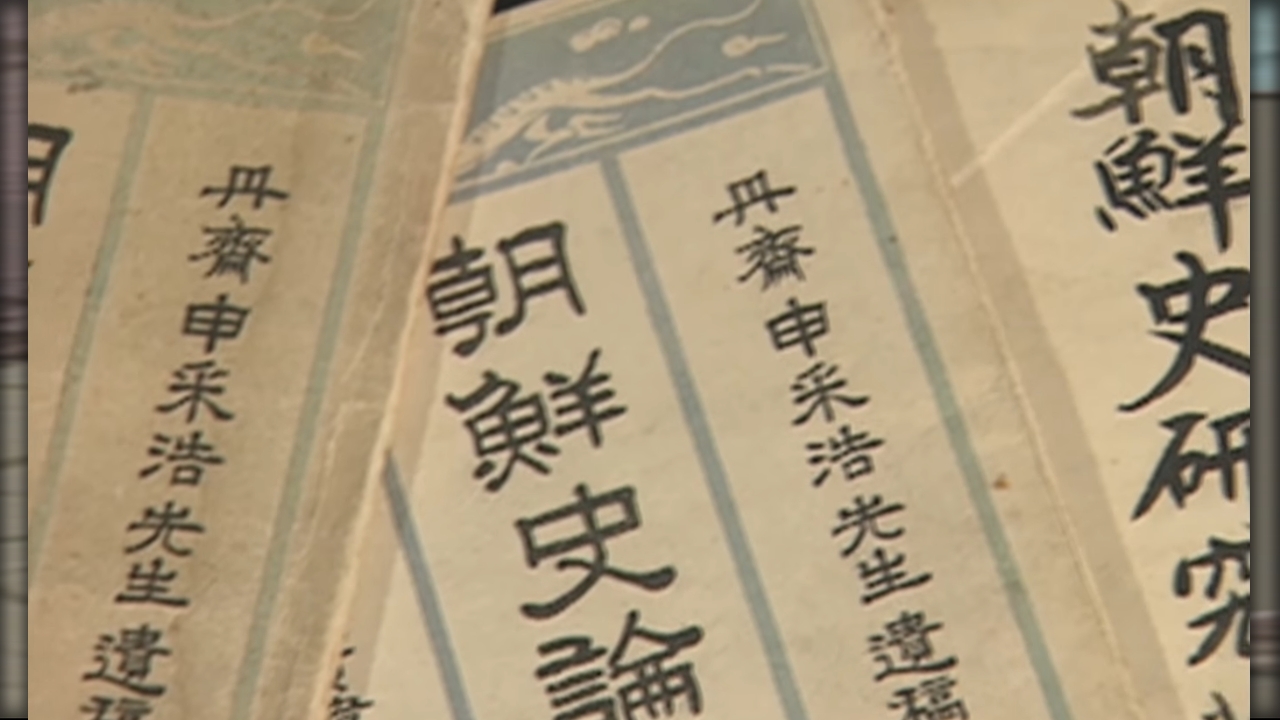 朝鮮史研究
丹齋申采浩先生遺稿
朝鮮史論
丹齋申采浩先生遺